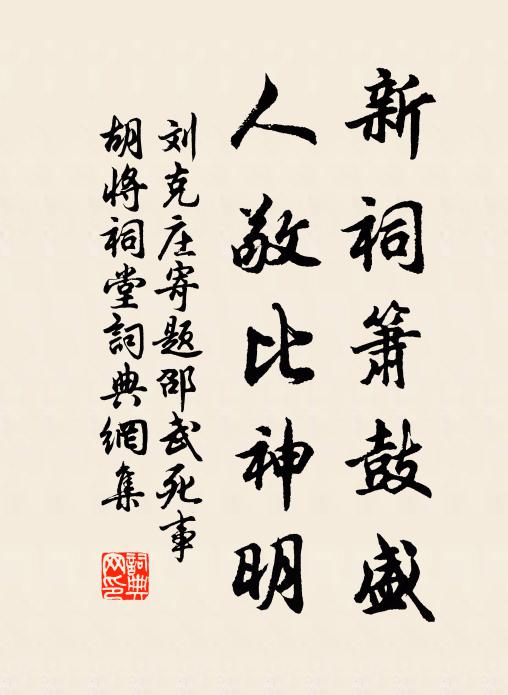 新祠箫鼓盛
人敬比神明
刘克庄寄题邵武死事
胡将祠堂詞典網集
詞典网印